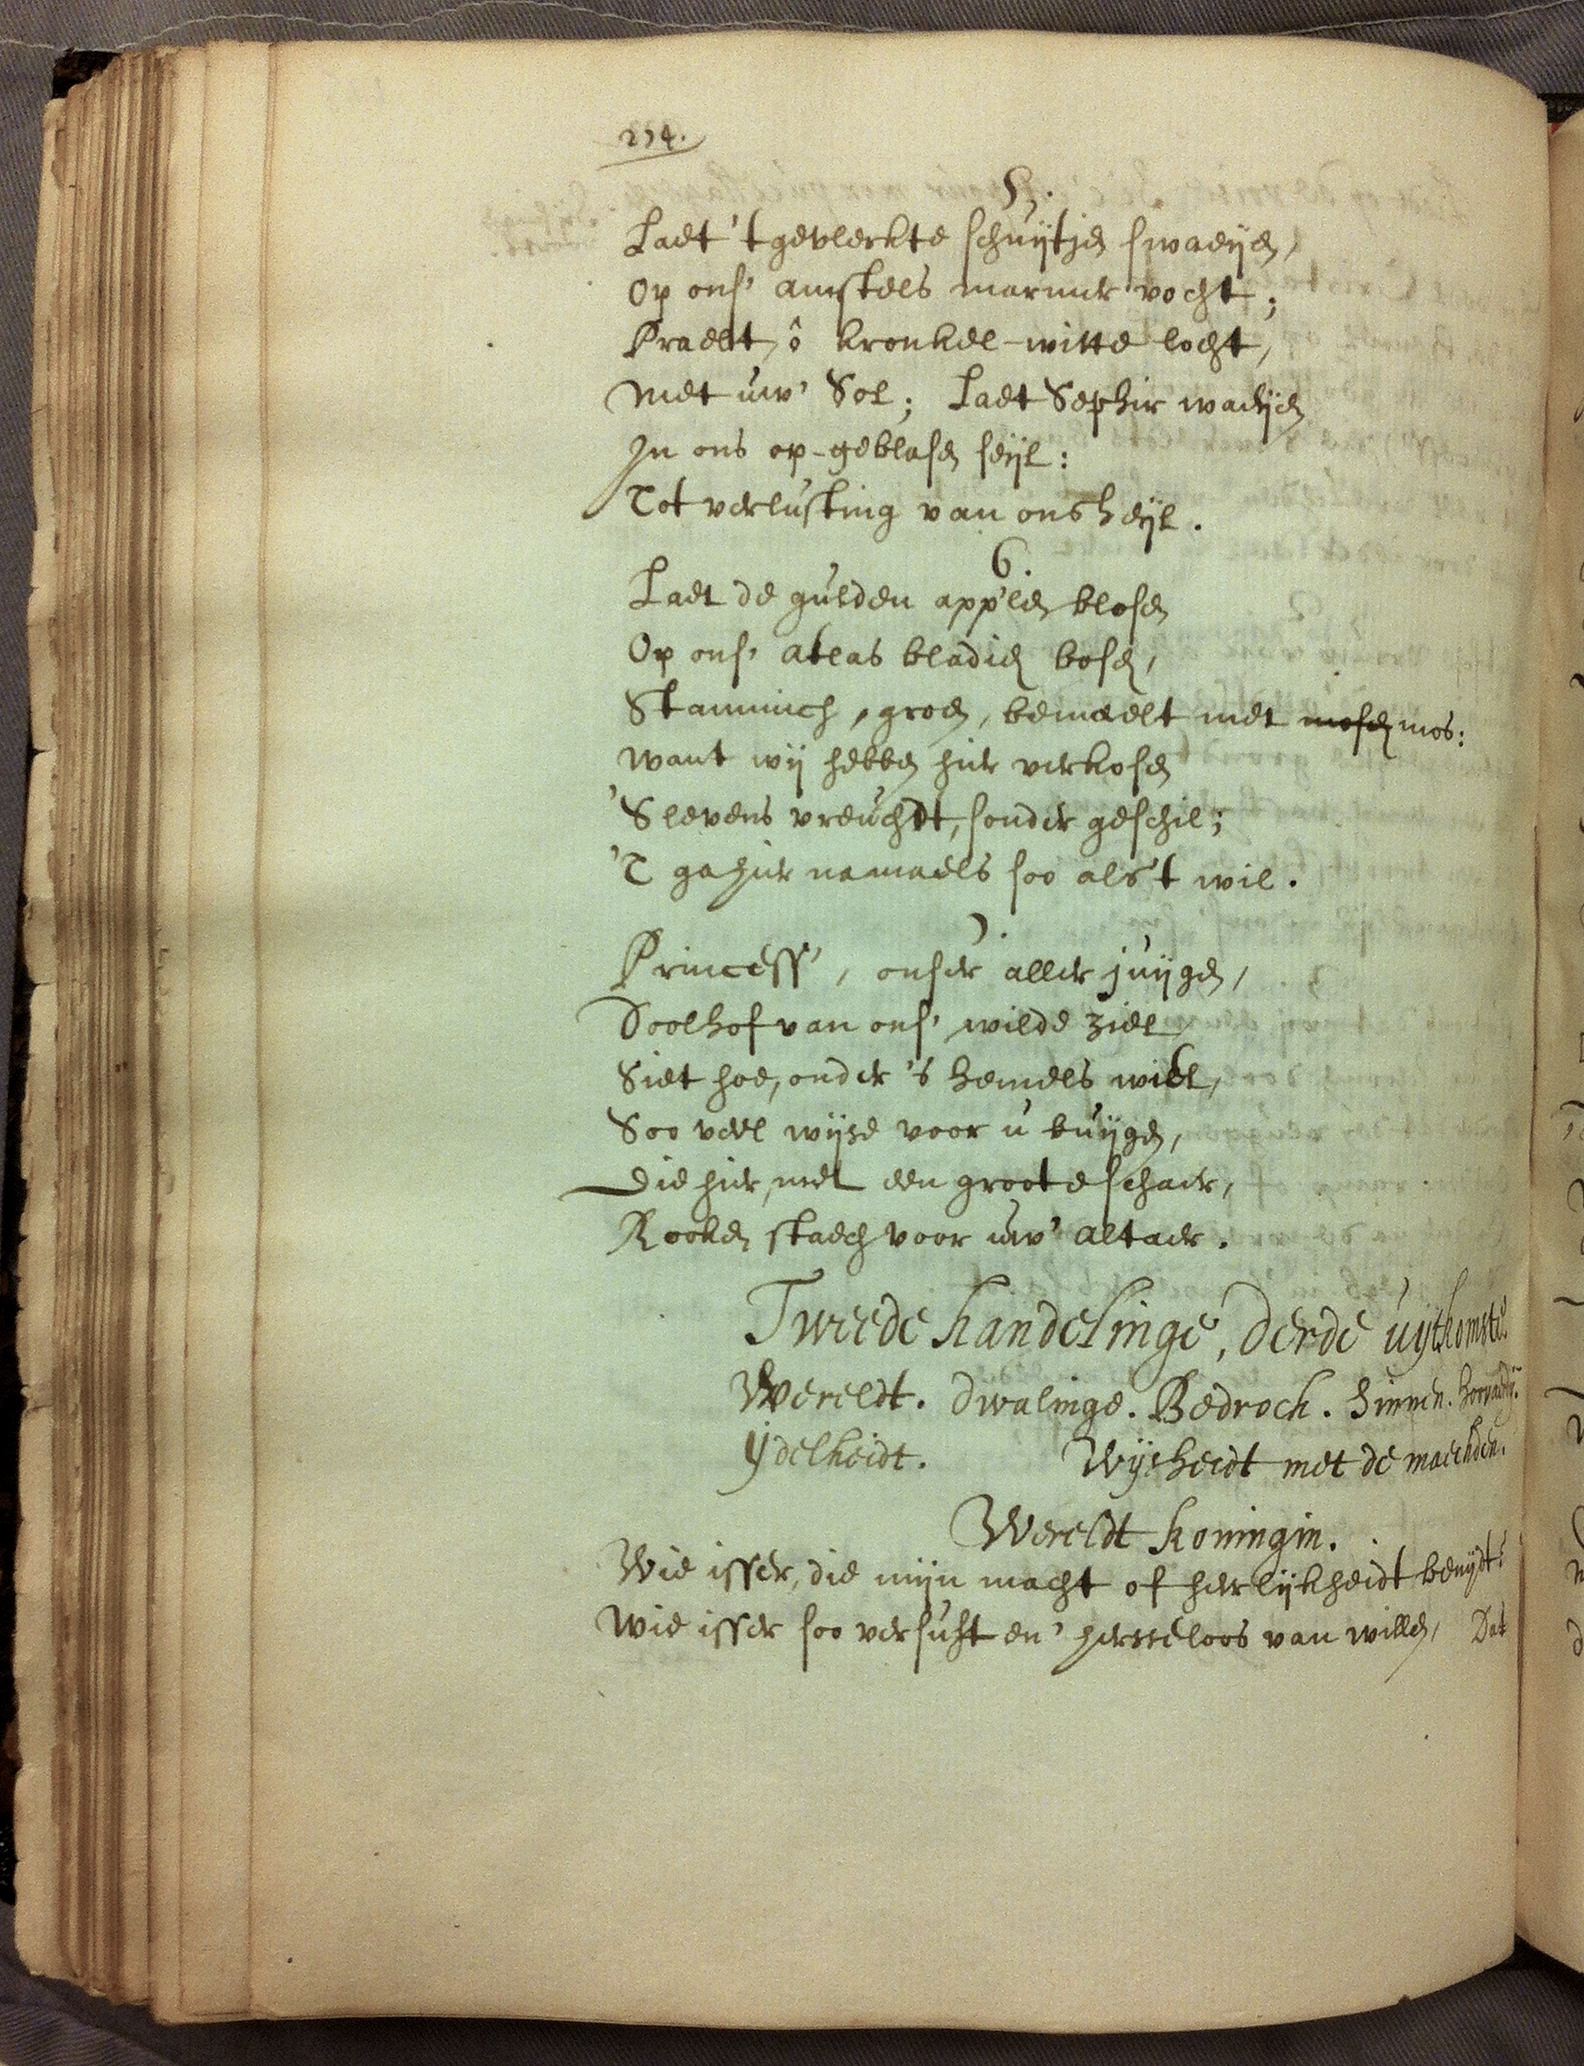 274.
5.
Laet 't gevlerkte schuijtjen swaeijen,
Op ons' amstels marmer vocht;
Praelt, ô kronkel-witte locht,
Met uw' Sol; Laet Sephir waeijen
In ons op-geblasen seijl:
Tot verlusting van ons heijl.
6.
Laet de gulden app'len blosen
Op ons' atlas bladien bosen,
Stammich, groen, bemaelt met mosen mos:
Want wij hebben hier verkosen
'S levens vreuchdt, sonder geschil;
'T ga hier namaels soo als 't wil.
7.
Princess', onser aller juijgen,
Doolhof van ons' wilde ziel
Siet hoe, onder 's hemels wiel,
Soo veel wijse voor u buijgen,
Die hier, met een groote schaer,
Rooken staech voor uw' altaer.
Tweede handelinge, derde uijtkomste.
Wereldt. Dwalinge. Bedroch. Sinnen. Hoovaerdij.
Ijdelheidt. Wijsheidt met de maechden.
Wereldt koningin.
Wie isser, die mijn macht of heerlijkheidt benijdt?
Wie isser soo versuft en' herseloos van willen, Dat